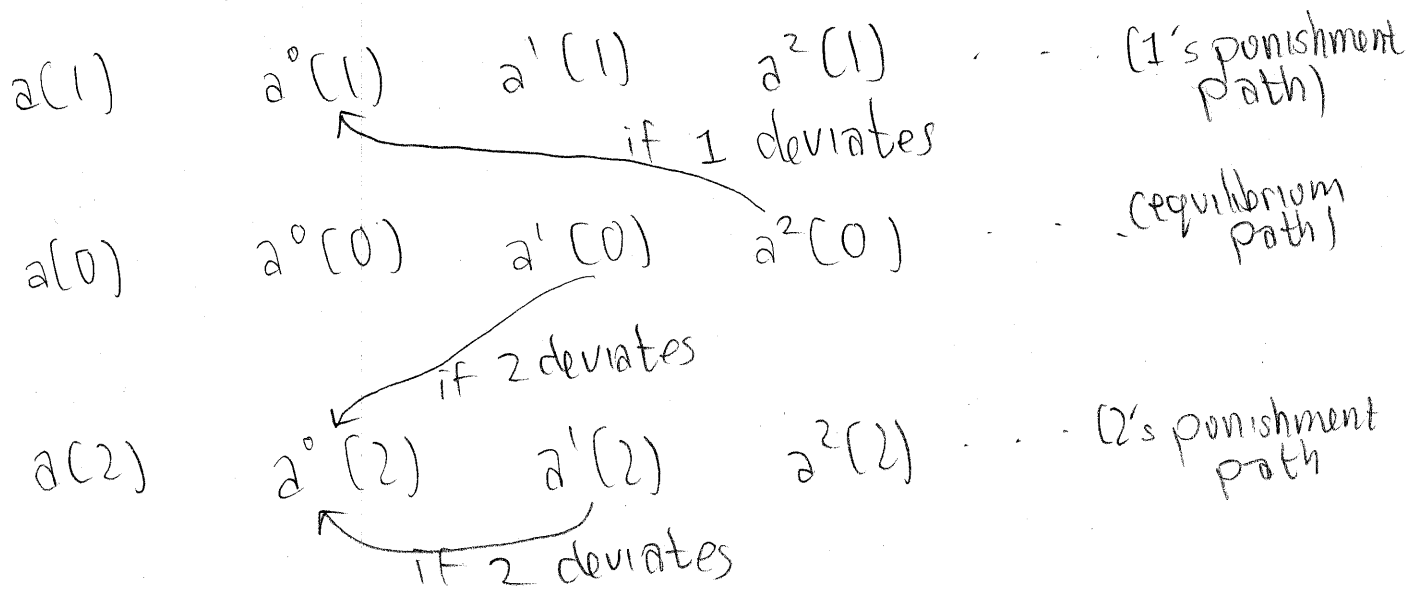 a(1) a⁰(1) a¹(1) a²(1) . . . (1's punishment
path)
if 1 deviates
a(0) a⁰(0) a¹(0) a²(0) . . . (equilibrium
path)
if 2 deviates
a(2) a⁰(2) a¹(2) a²(2) . . . (2's punishment
path
if 2 deviates